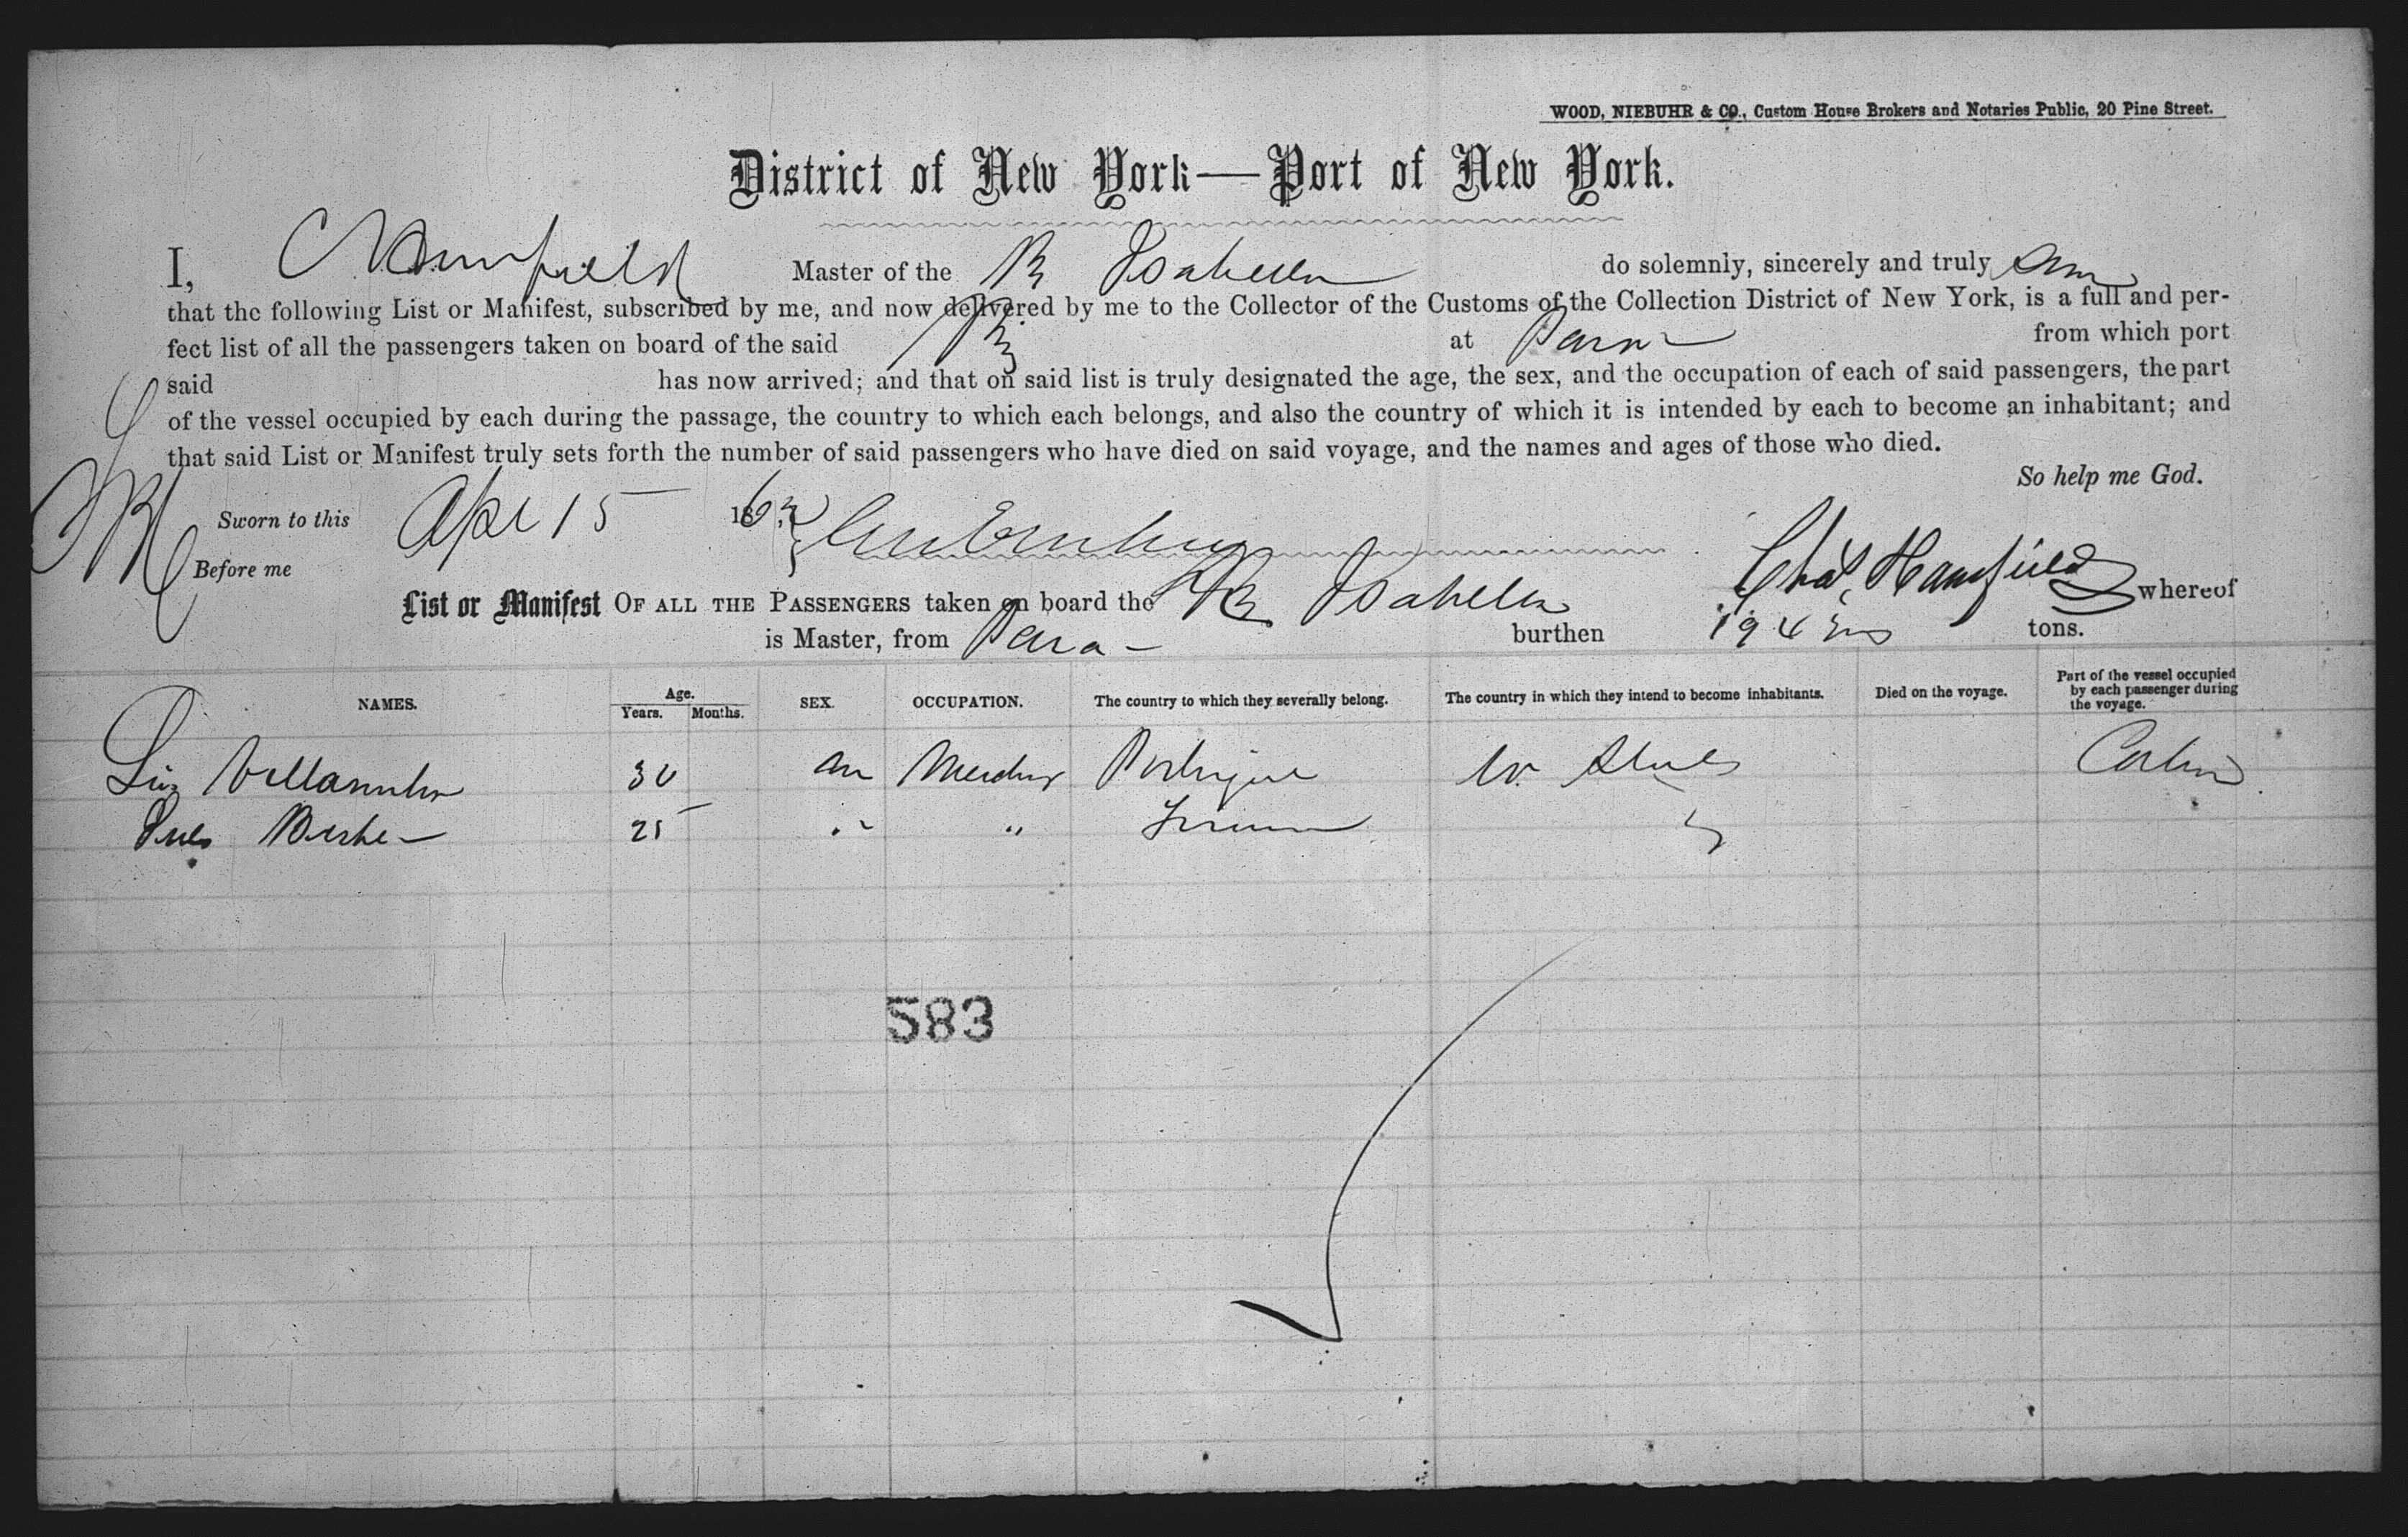 WOOD, NIEBUHR & CO., Custom House Brokers and Notaries Public, 20 Pine Street.
District of New York—Port of New York.
I, C Hamfield Master of the Br Isabella do solemnly, sincerely and truly
that the following List or Manifest, subscribed by me, and now delivered by me to the Collector of the Customs of the Collection District of New York, is a full and per-
fect list of all the passengers taken on board of the said Br at Para from which port
said has now arrived; and that on said list is truly designated the age, the sex, and the occupation of each of said passengers, the part
of the vessel occupied by each during the passage, the country to which each belongs, and also the country of which it is intended by each to become an inhabitant; and
that said List or Manifest truly sets forth the number of said passengers who have died on said voyage, and the names and ages of those who died.
So help me God.
Sworn to this Apl 15 1863
Before me
Chas. Hamfield
List or Manifest OF ALL THE PASSENGERS taken on board the Br Isabella whereof
is Master, from Para burthen 194 tons.
NAMES. Age. Years. Months. SEX. OCCUPATION. The country to which they severally belong. The country in which they intend to become inhabitants. Died on the voyage. Part of the vessel occupied by each passenger during the voyage.
30 Portugal U. States Cabin
25 " "
583